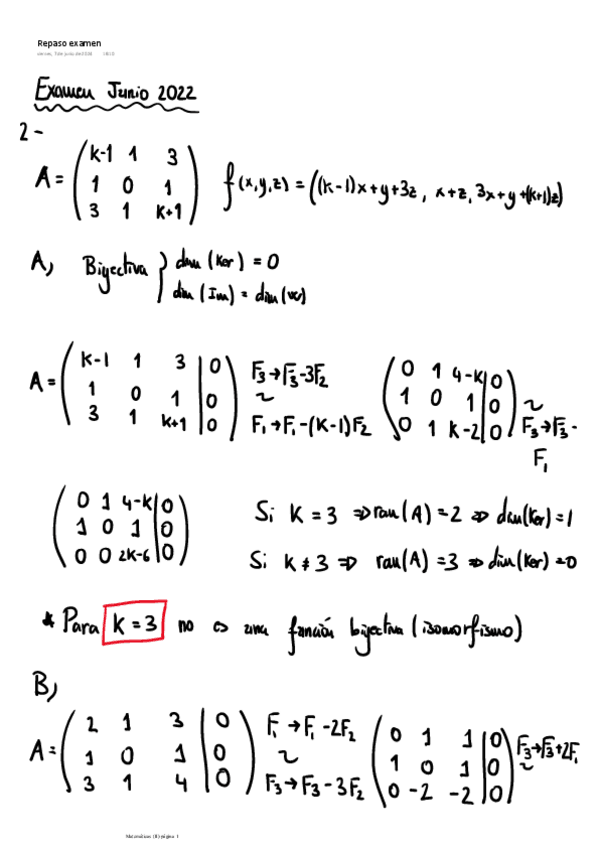 Repaso examen
Examen Junio 2022
2-
A = ( k-1 1 3 ; 1 0 1 ; 3 1 k+1 ) f(x,y,z) = ((k-1)x+y+3z, x+z, 3x+y+(k+1)z)
A) Biyectiva } dim (Ker) = 0
dim (Im) = dim(
A = ( k-1 1 3 | 0 ; 1 0 1 | 0 ; 3 1 k+1 | 0 ) F₃→F₃-3F₂ ~ F₁→F₁-(K-1)F₂ ( 0 1 4-K | 0 ; 1 0 1 | 0 ; 0 1 K-2 | 0 ) ~ F₃→F₃-F₁
( 0 1 4-K | 0 ; 1 0 1 | 0 ; 0 0 2K-6 | 0 )
Si K = 3 ⇒ ran(A) = 2 ⇒ dim(Ker) = 1
Si K ≠ 3 ⇒ ran(A) = 3 ⇒ dim(Ker) = 0
* Para K = 3 no es una función biyectiva (isomorfismo)
B)
A = ( 2 1 3 | 0 ; 1 0 1 | 0 ; 3 1 4 | 0 ) F₁→F₁-2F₂ ~ F₃→F₃-3F₂ ( 0 1 1 | 0 ; 1 0 1 | 0 ; 0 -2 -2 | 0 ) F₃→F₃+2F₁ ~
Matemáticas (B) página 1